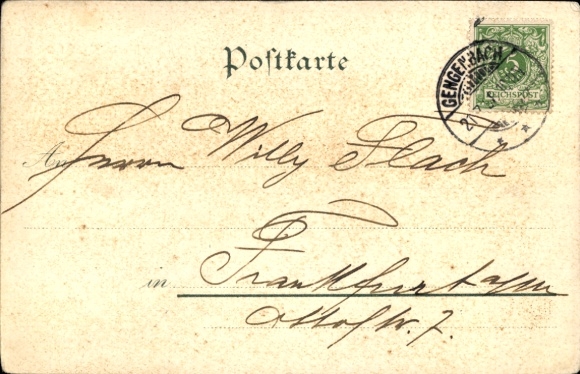 Postkarte
GENGENBACH
5
REICHSPOST
An Herrn Willy Flach
in Frankfurt a/m
Ottostr. 7.